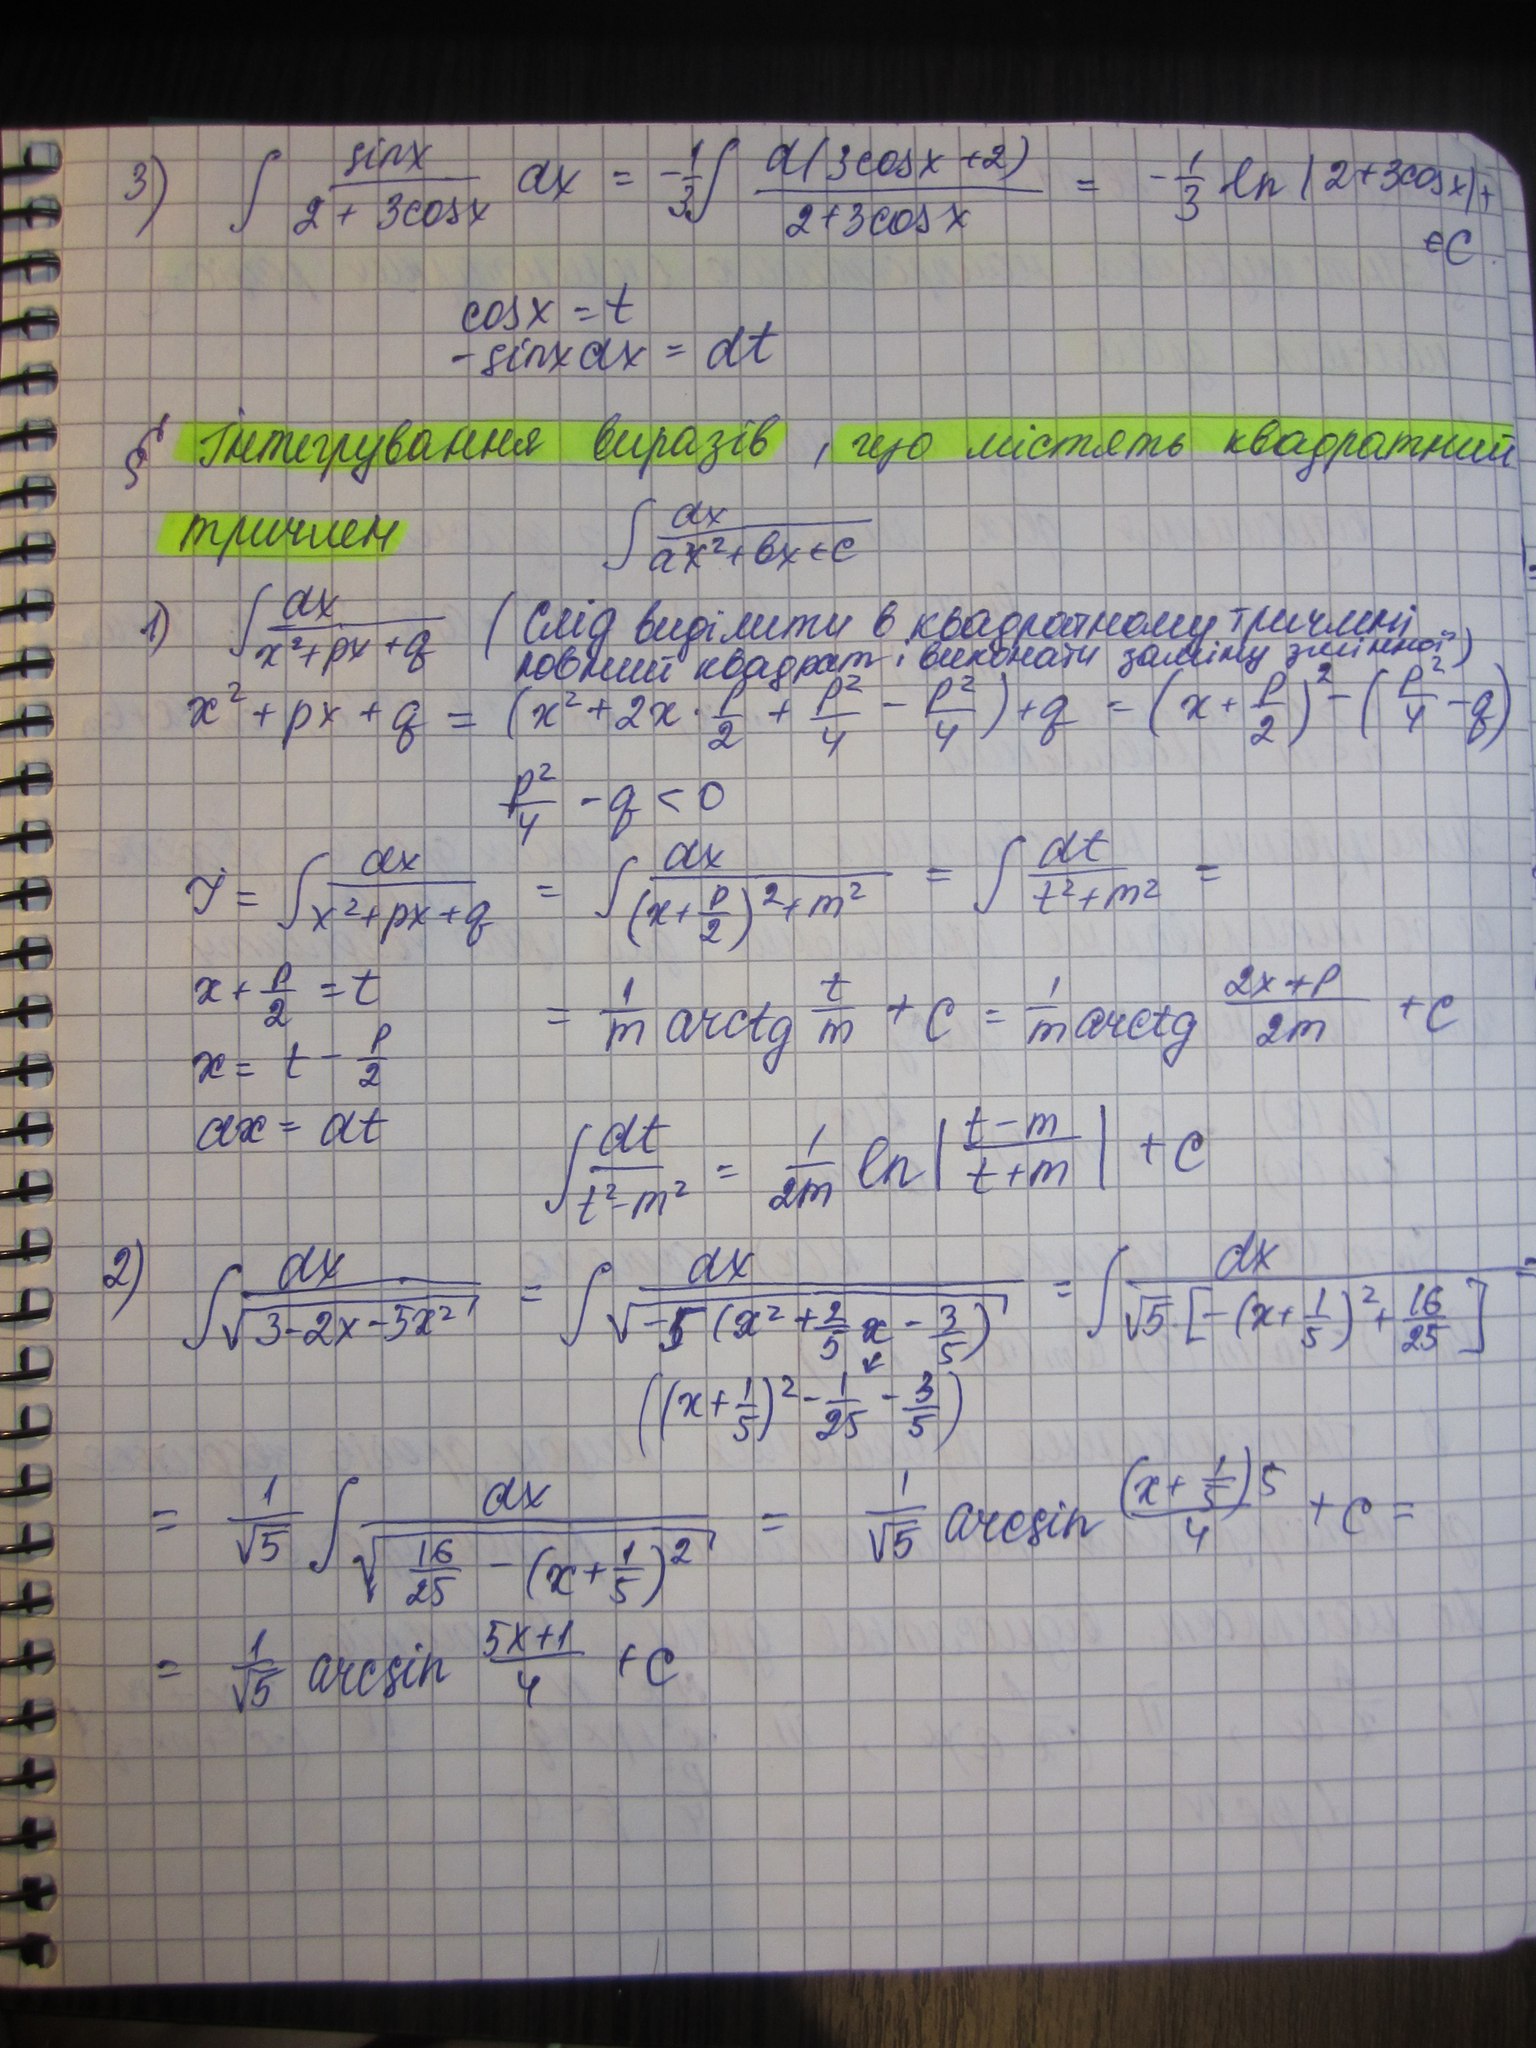 3) ∫ sinx / (2 + 3cosx) dx = -1/3 ∫ d(3cosx+2) / (2+3cosx) = -1/3 ln |2+3cosx| +
+C.
cosx = t
-sinxdx = dt
§ Інтегрування виразів, що містять квадратний
тричлен ∫ dx / (ax²+bx+c)
1) ∫ dx / (x²+px+q) (Слід виділити в квадратному тричлені
повний квадрат і виконати заміну змінної)
x²+px+q = (x²+2x·p/2 + p²/4 - p²/4)+q = (x+p/2)² - (p²/4 - q)
p²/4 - q < 0
J = ∫ dx / (x²+px+q) = ∫ dx / ((x+p/2)²+m²) = ∫ dt / (t²+m²) =
x + p/2 = t
= 1/m arctg t/m + C = 1/m arctg (2x+p)/2m + C
x = t - p/2
dx = dt
∫ dt / (t²-m²) = 1/2m ln |(t-m)/(t+m)| + C
2) ∫ dx / √(3-2x-5x²) = ∫ dx / √(-5(x²+2/5x-3/5)) = ∫ dx / √5·[-(x+1/5)²+16/25] =
((x+1/5)² - 1/25 - 3/5)
= 1/√5 ∫ dx / √(16/25 - (x+1/5)²) = 1/√5 arcsin (x+1/5)5/4 + C =
= 1/√5 arcsin (5x+1)/4 + C